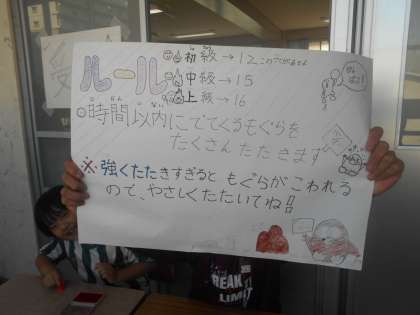 ルール
初級→12
中級→15
上級→16
時間以内にでてくるもぐらを
たくさんたたきます
※強くたたきすぎると もぐらがこわれる
ので、やさしくたたいてね!!
BREAK
LIMIT